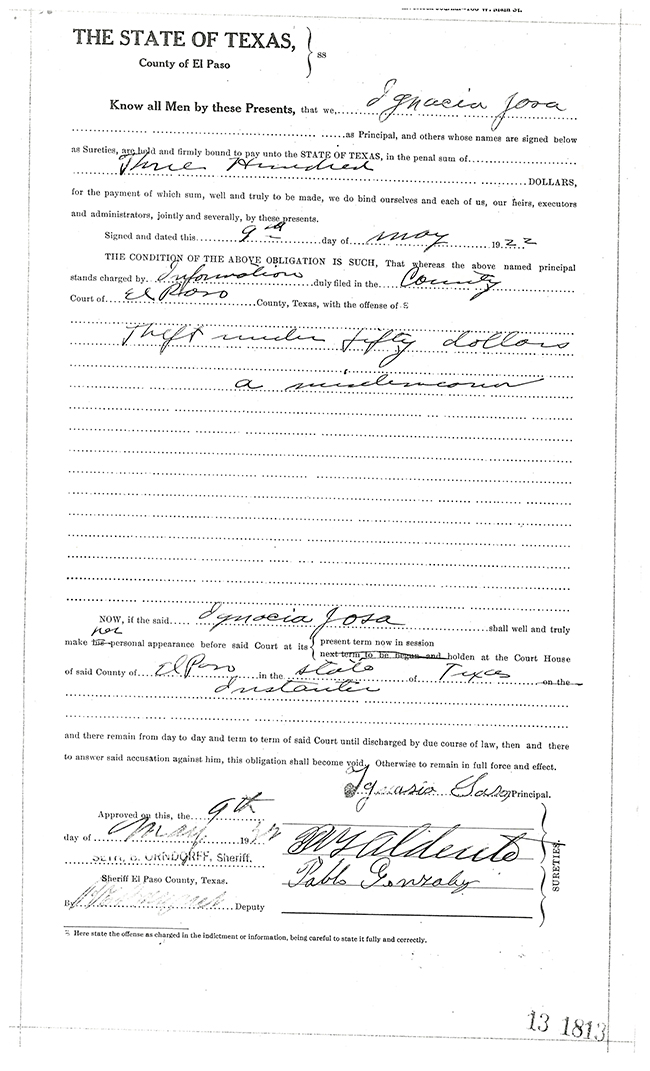 THE STATE OF TEXAS,
County of El Paso
ss
Know all Men by these Presents, that we, Ignacia Josa
as Principal, and others whose names are signed below
as Sureties, are held and firmly bound to pay unto the STATE OF TEXAS, in the penal sum of
Three Hundred
DOLLARS,
for the payment of which sum, well and truly to be made, we do bind ourselves and each of us, our heirs, executors
and administrators, jointly and severally, by these presents.
Signed and dated this 9th day of may 1922
THE CONDITION OF THE ABOVE OBLIGATION IS SUCH, That whereas the above named principal
stands charged by Information duly filed in the County
Court of El Paso County, Texas, with the offense of
Theft under fifty dollars
a misdemeanor
NOW, if the said Ignacia Josa shall well and truly
her
make his personal appearance before said Court at its
present term now in session
next term to be begun and holden at the Court House
of said County of El Paso in the state of Texas on the
Instanter
and there remain from day to day and term to term of said Court until discharged by due course of law, then and there
to answer said accusation against him, this obligation shall become void. Otherwise to remain in full force and effect.
Principal.
Approved on this, the 9th
day of May 1922
SETH B. ORNDORFF, Sheriff.
Sheriff El Paso County, Texas.
By Deputy
Pablo
SURETIES.
Here state the offense as charged in the indictment or information, being careful to state it fully and correctly.
13 1813